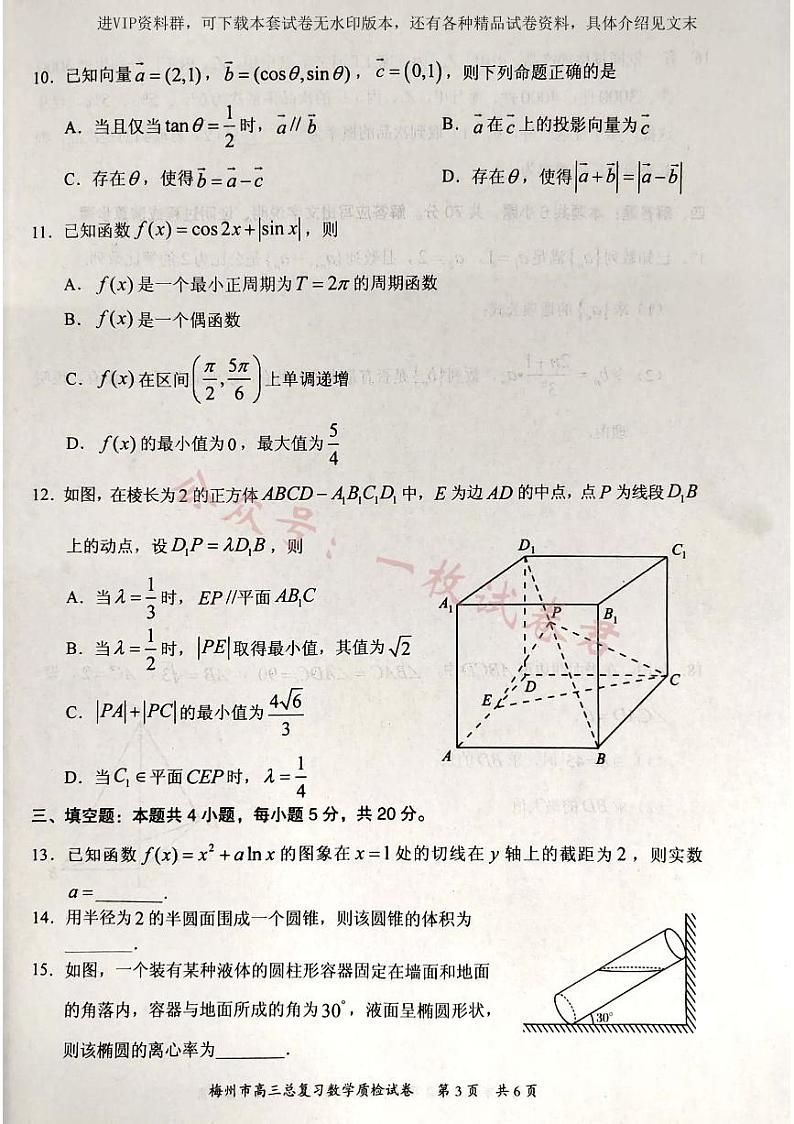 进VIP资料群，可下载本套试卷无水印版本，还有各种精品试卷资料，具体介绍见文末
10．已知向量 $\vec{a}=(2,1)$，$\vec{b}=(\cos\theta,\sin\theta)$，$\vec{c}=(0,1)$，则下列命题正确的是
A．当且仅当 $\tan\theta=\frac{1}{2}$ 时，$\vec{a}//\vec{b}$ B．$\vec{a}$ 在 $\vec{c}$ 上的投影向量为 $\vec{c}$
C．存在 $\theta$，使得 $\vec{b}=\vec{a}-\vec{c}$ D．存在 $\theta$，使得 $|\vec{a}+\vec{b}|=|\vec{a}-\vec{b}|$
11．已知函数 $f(x)=\cos 2x+|\sin x|$，则
A．$f(x)$ 是一个最小正周期为 $T=2\pi$ 的周期函数
B．$f(x)$ 是一个偶函数
C．$f(x)$ 在区间 $\left(\frac{\pi}{2},\frac{5\pi}{6}\right)$ 上单调递增
D．$f(x)$ 的最小值为 0，最大值为 $\frac{5}{4}$
12．如图，在棱长为 2 的正方体 $ABCD-A_1B_1C_1D_1$ 中，$E$ 为边 $AD$ 的中点，点 $P$ 为线段 $D_1B$
上的动点，设 $D_1P=\lambda D_1B$，则
A．当 $\lambda=\frac{1}{3}$ 时，$EP//$平面 $AB_1C$
B．当 $\lambda=\frac{1}{2}$ 时，$|PE|$ 取得最小值，其值为 $\sqrt{2}$
C．$|PA|+|PC|$ 的最小值为 $\frac{4\sqrt{6}}{3}$
D．当 $C_1\in$ 平面 $CEP$ 时，$\lambda=\frac{1}{4}$
D₁
C₁
A₁
P
B₁
D
E
C
A
B
公众号：一枚试卷君
三、填空题：本题共 4 小题，每小题 5 分，共 20 分。
13．已知函数 $f(x)=x^2+a\ln x$ 的图象在 $x=1$ 处的切线在 $y$ 轴上的截距为 2，则实数
$a=$________．
14．用半径为 2 的半圆面围成一个圆锥，则该圆锥的体积为
________．
15．如图，一个装有某种液体的圆柱形容器固定在墙面和地面
的角落内，容器与地面所成的角为 $30^\circ$，液面呈椭圆形状，
则该椭圆的离心率为________．
30°
梅州市高三总复习数学质检试卷 第 3 页 共 6 页